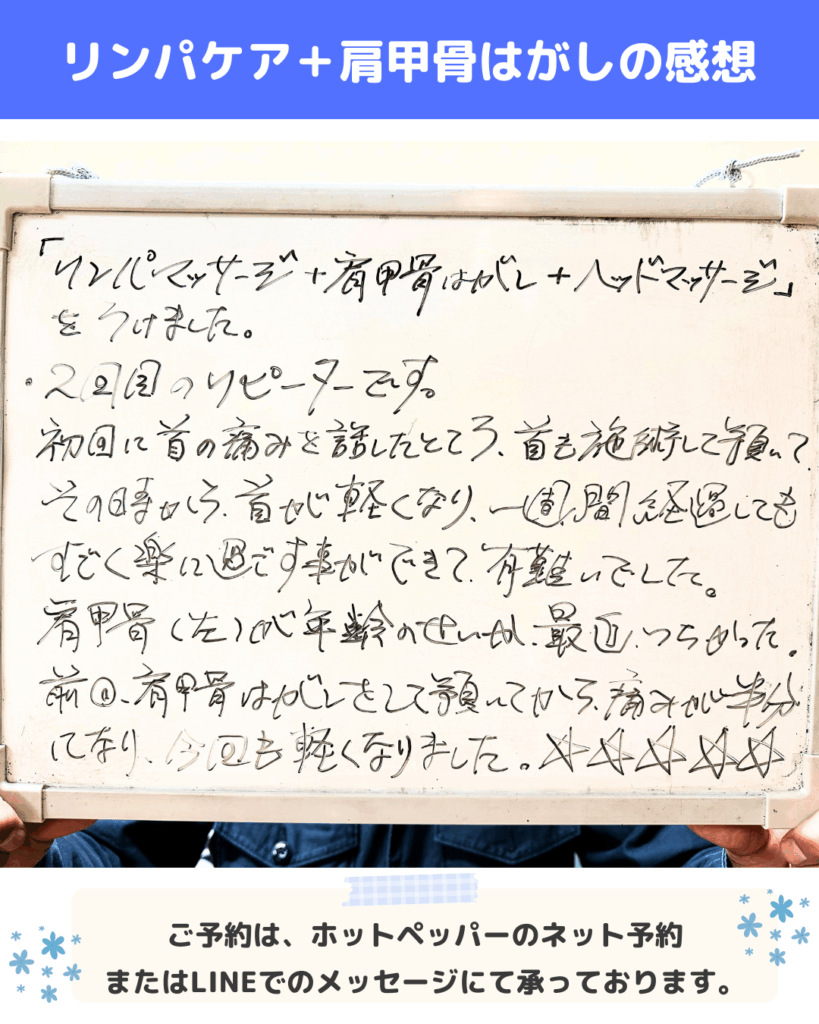 リンパケア＋肩甲骨はがしの感想
「リンパマッサージ＋肩甲骨はがし＋ヘッドマッサージ」
をうけました。
・2回目のリピーターです。
初回に首の痛みを話したところ、首も施術して頂いて、
その時から、首が軽くなり、一週間経過しても
すごく楽に過ごす事ができて、有難いでした。
肩甲骨(左)が年齢のせいか、最近、つらかった。
前回、肩甲骨はがしをして頂いてから、痛みが半分
になり、今回も軽くなりました。☆☆☆☆☆
ご予約は、ホットペッパーのネット予約
またはLINEでのメッセージにて承っております。